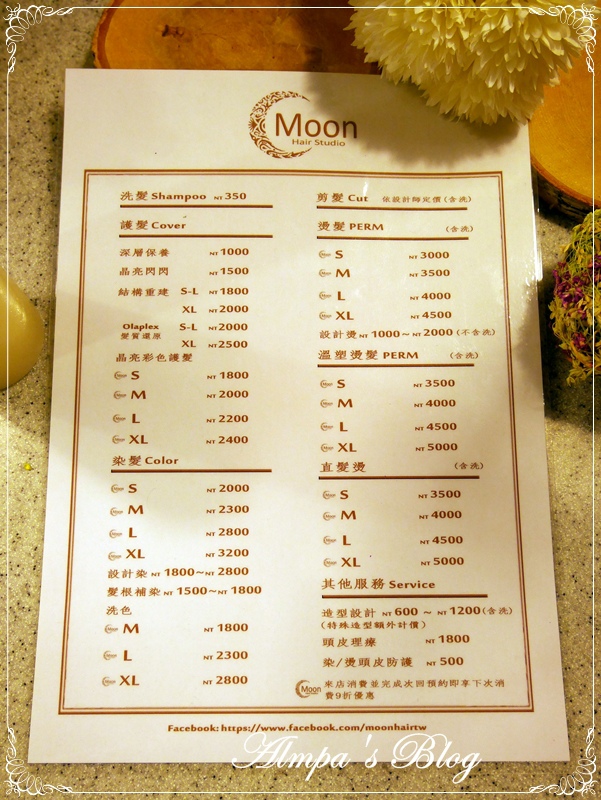 Moon
Hair Studio
洗髮 Shampoo NT 350
護髮 Cover
深層保養 NT 1000
晶亮閃閃 NT 1500
結構重建 S-L NT 1800
XL NT 2000
Olaplex S-L NT 2000
髮質還原
XL NT 2500
晶亮彩色護髮
Moon S NT 1800
Moon M NT 2000
Moon L NT 2200
Moon XL NT 2400
染髮 Color
Moon S NT 2000
Moon M NT 2300
Moon L NT 2800
Moon XL NT 3200
設計染 NT 1800~NT 2800
髮根補染 NT 1500~NT 1800
洗色
Moon M NT 1800
Moon L NT 2300
Moon XL NT 2800
剪髮 Cut 依設計師定價(含洗)
燙髮 PERM (含洗)
Moon S NT 3000
Moon M NT 3500
Moon L NT 4000
Moon XL NT 4500
設計燙 NT 1000~NT 2000 (不含洗)
溫塑燙髮 PERM (含洗)
Moon S NT 3500
Moon M NT 4000
Moon L NT 4500
Moon XL NT 5000
直髮燙 (含洗)
Moon S NT 3500
Moon M NT 4000
Moon L NT 4500
Moon XL NT 5000
其他服務 Service
造型設計 NT 600 ~ NT 1200 (含洗)
(特殊造型額外計價)
頭皮理療 NT 1800
染/燙頭皮防護 NT 500
Moon 來店消費並完成次回預約即享下次消
費9折優惠
Facebook: https://www.facebook.com/moonhairtw
Almpa's Blog